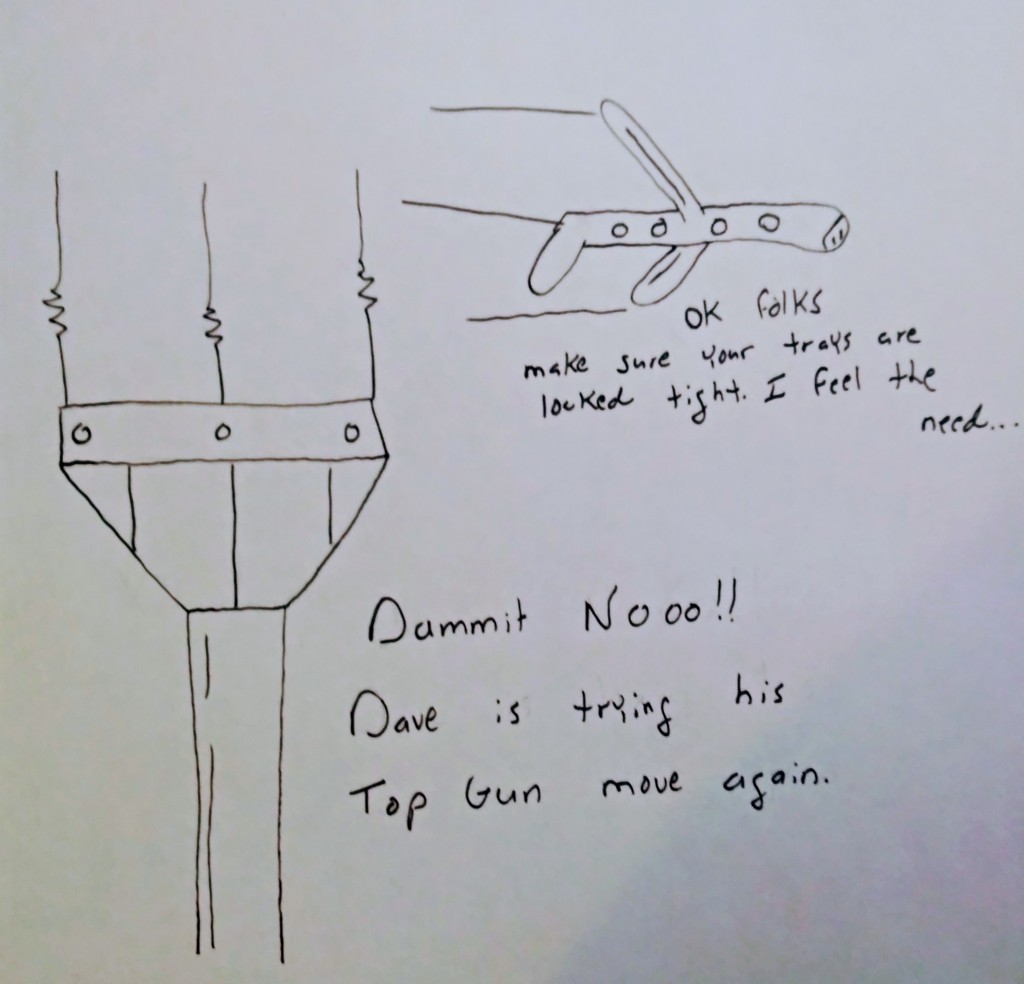 OK folks
make sure your trays are
locked tight. I feel the
need...
Dammit Nooo!!
Dave is trying his
Top Gun move again.